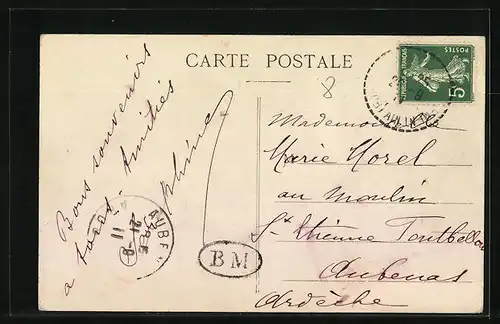 CARTE POSTALE
8
Bons souvenirs
à tous. Amitiés
POSTES
5
Mademoiselle
Marie Morel
au Moulin
St Etienne Fontbellon
Aubenas
Ardèche
AUBEN
21-8
11
BM